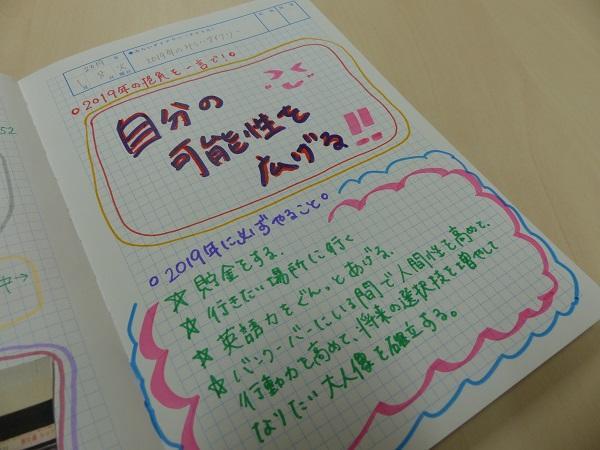 2019年
1月 8日 火
○2019年の抱負を一言で!○
自分の
可能性を
広げる!!
○2019年に必ずやること○
☆貯金をする.
☆行きたい場所に行く
☆英語力をぐんっとあげる.
☆バンクーバーにいる間で人間性を高めて、
行動力を高めて、将来の選択技を増やして
なりたい大人像を確立する。
52